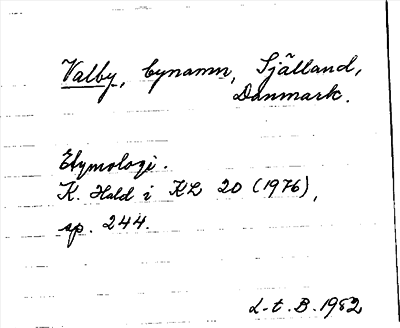 Valby, bynamn, Själland,
Danmark.
Etymologi.
K. Hald i KL 20 (1976),
sp. 244.
L-t. B. 1982